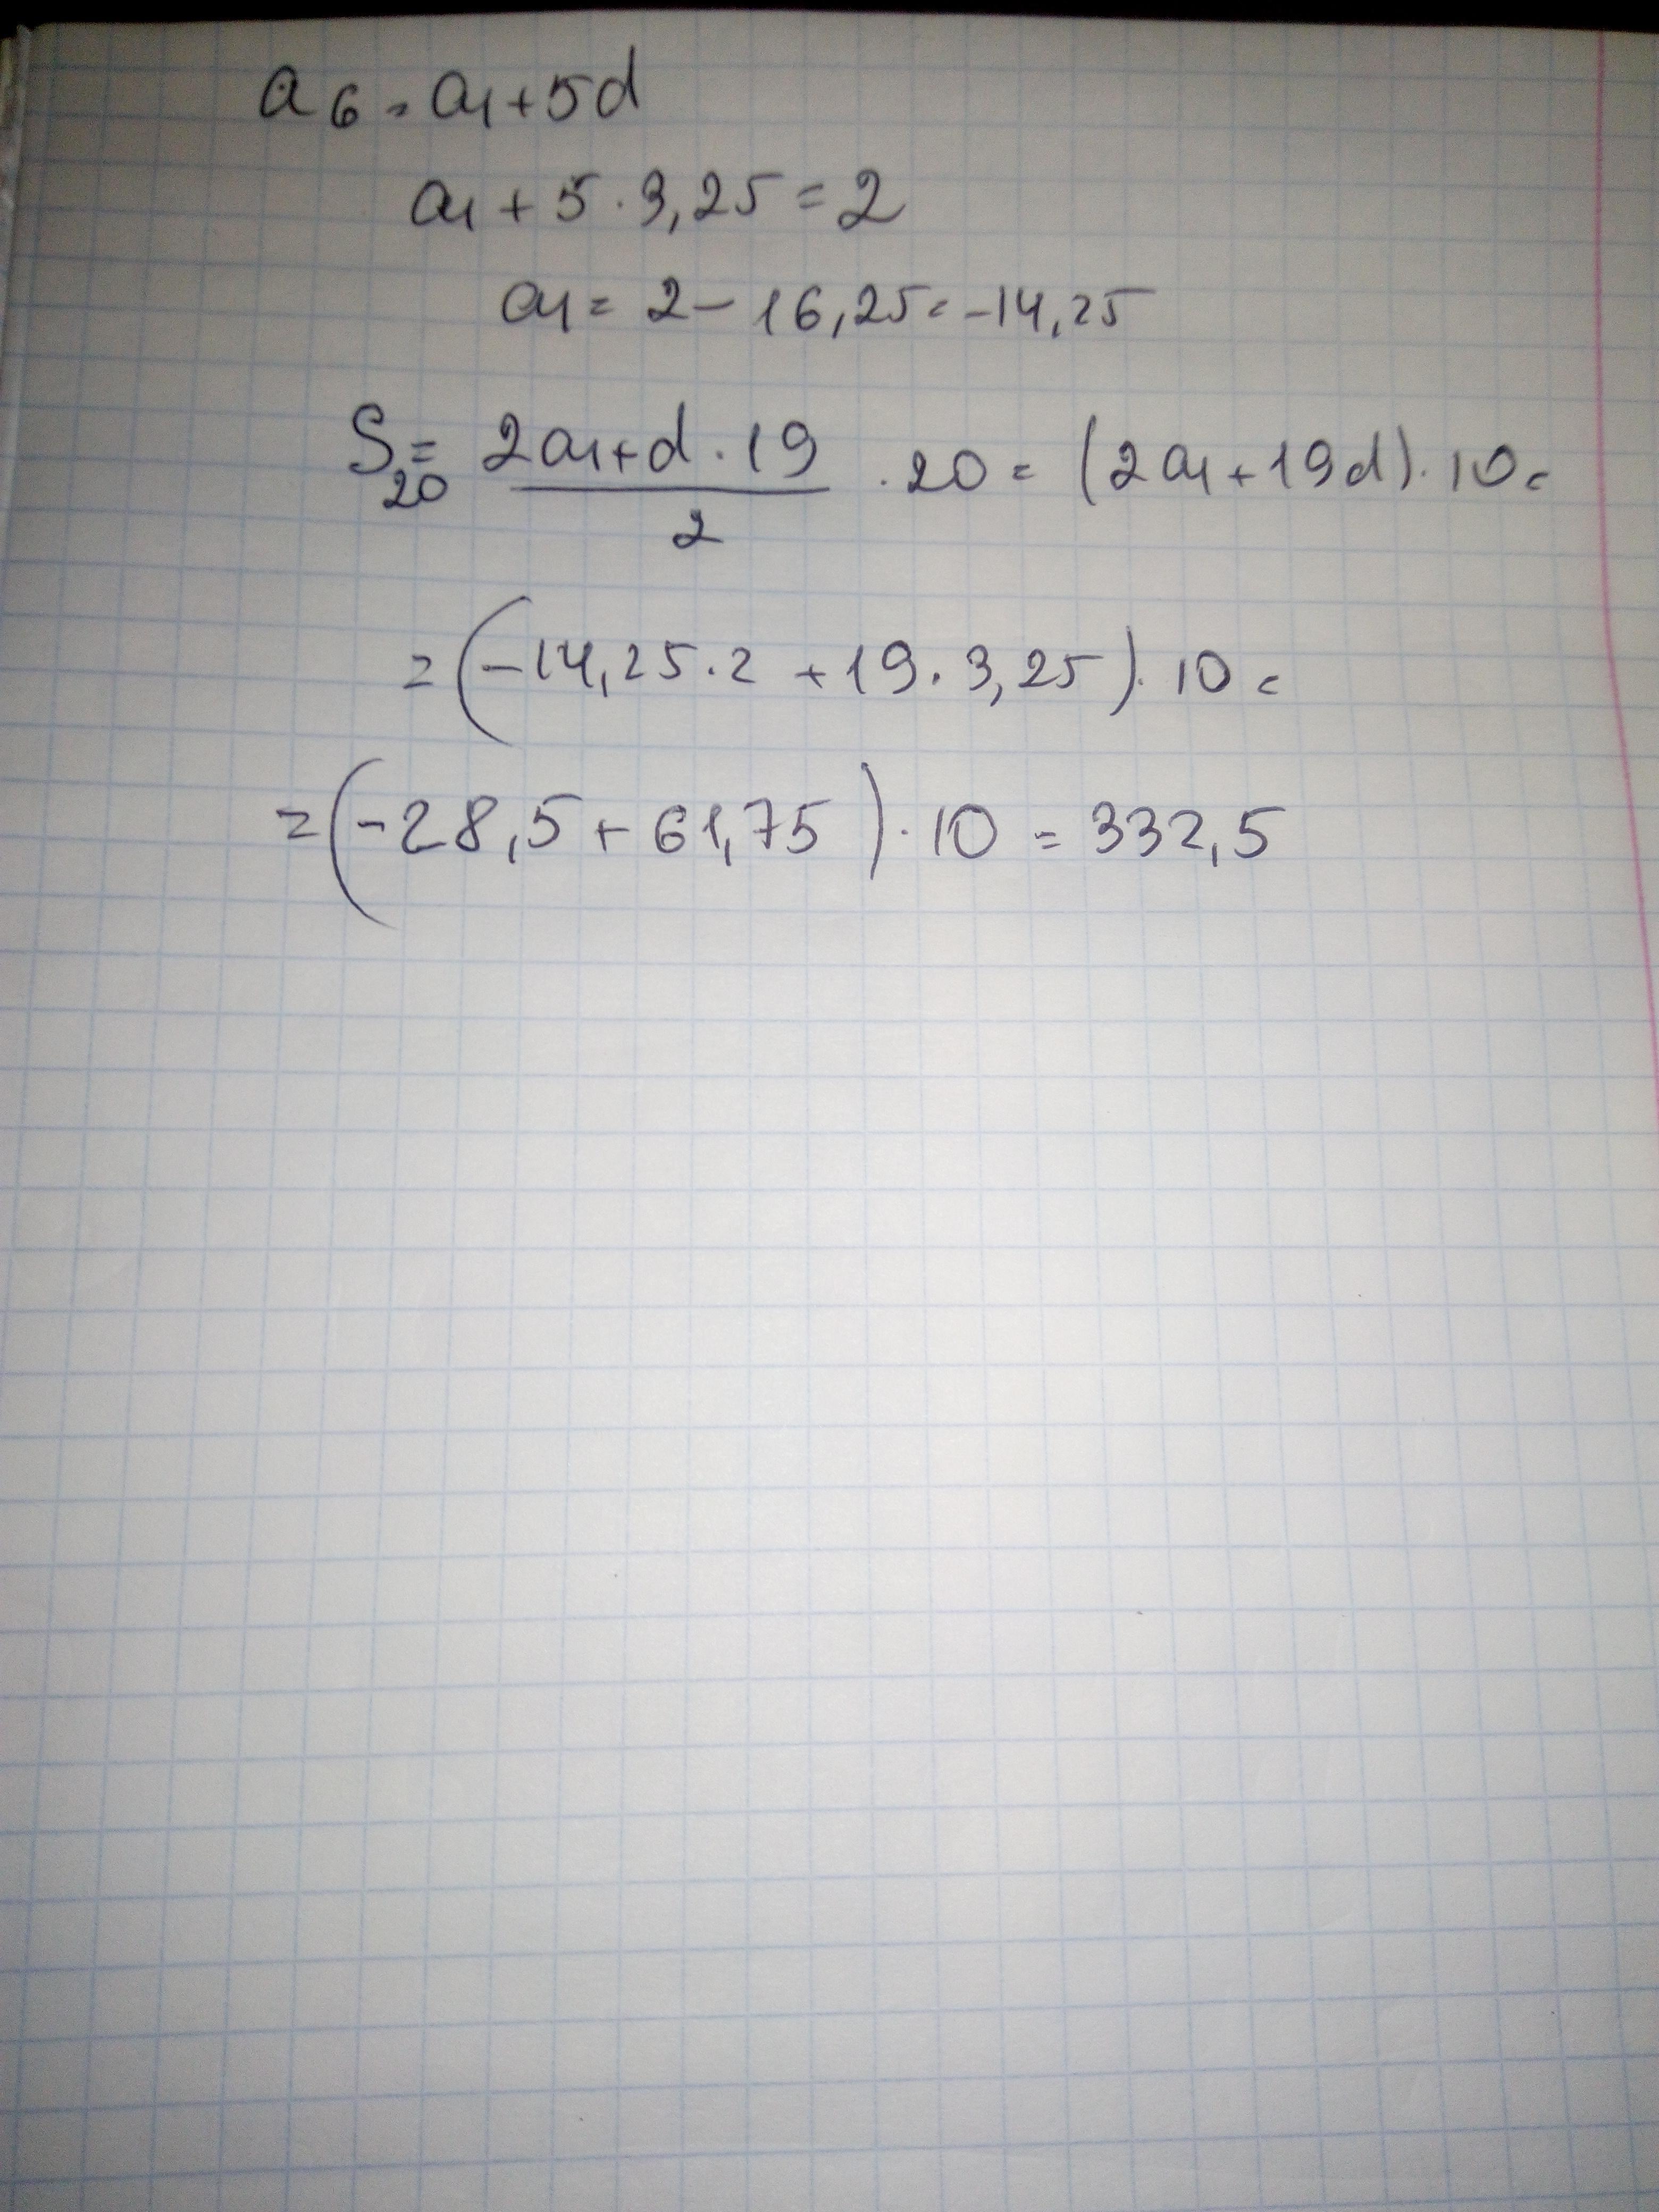 a₆ = a₁ + 5d
a₁ + 5 · 3,25 = 2
a₁ = 2 - 16,25 = -14,25
S₂₀ = (2a₁ + d · 19)/2 · 20 = (2a₁ + 19d) · 10 =
= (-14,25 · 2 + 19 · 3,25) · 10 =
= (-28,5 + 61,75) · 10 = 332,5